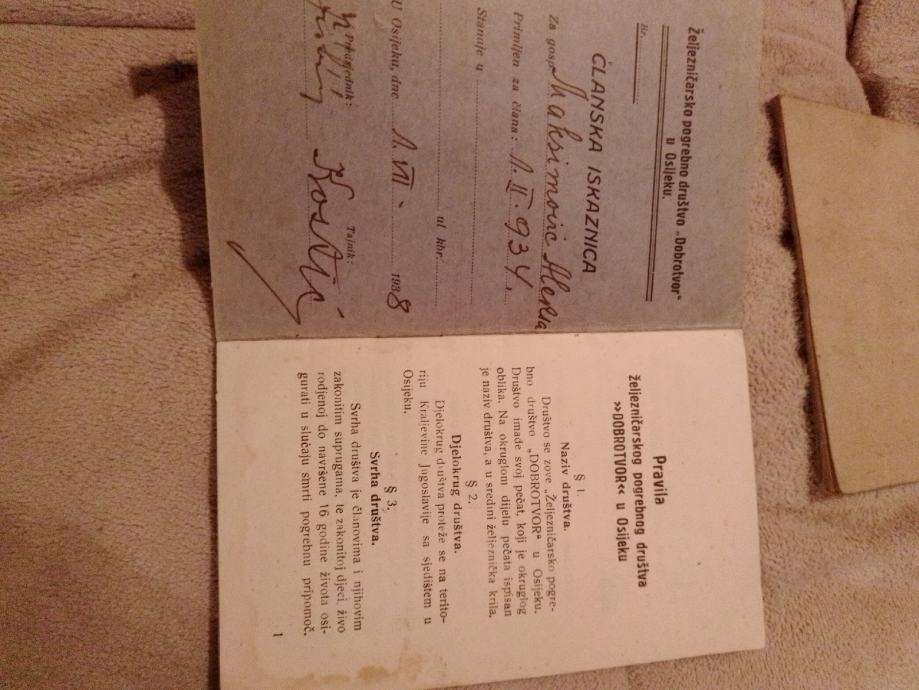 Željezničarsko pogrebno društvo „Dobrotvor"
u Osijeku.
Br.
ČLANSKA ISKAZNICA
Za gosp. Maksimović
Primljen za člana: 1. II. 934.
Stanuje u
ul kbr.
U Osijeku, dne 1. VII 1938
Predsjednik: Tajnik:
Kostić
Pravila
željezničarskog pogrebnog društva
»DOBROTVOR« u Osijeku
§ 1.
Naziv društva.
Društvo se zove „Željezničarsko pogre-
bno društvo „DOBROTVOR" u Osijeku.
Društvo imade svoj pečat, koji je okruglog
oblika. Na okruglom dijelu pečata ispisan
je naziv društva, a u sredini željeznička krila.
§ 2.
Djelokrug društva.
Djelokrug društva proteže se na terito-
riju Kraljevine Jugoslavije sa sjedištem u
Osijeku.
§ 3.
Svrha društva.
Svrha društva je članovima i njihovim
zakonitim suprugama, te zakonitoj djeci, živo
rodjenoj do navršene 16 godine života osi-
gurati u slučaju smrti pogrebnu pripomoć.
1